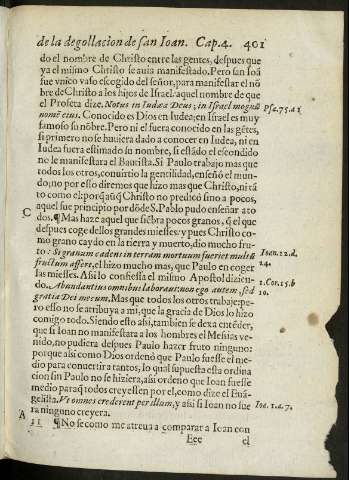 de la degollacion de san Ioan. Cap.4. 401
do el nombre de Christo entre las gentes, despues que
ya el mismo Christo se auia manifestado. Pero san Ioã
fue vnico vaso escogido del señor, para manifestar el nõ
bre de Christo a los hijos de Israel: aquel nombre de que
el Profeta dize. Notus in Iudæa Deus, in Israel magnũ Psa.75.a1
nomẽ eius. Conocido es Dios en Iudea, en Israel es muy
famoso su nõbre. Pero ni el fuera conocido en las gẽtes,
si primero no se huuiera dado a conocer en Iudea, ni en
Iudea fuera estimado su nombre, si estãdo el escondido
no le manifestara el Bautista. Si Paulo trabajo mas que
todos los otros, conuirtio la gentilidad, enseñò el mun-
do, no por esso diremos que hizo mas que Christo, ni tã
to como el: porq̃ aũq̃ Christo no predicó sino a pocos,
aquel fue principio por dõde S. Pablo pudo enseñar a to
C dos. ¶ Mas haze aquel que siẽbra pocos granos, q̃ el que
despues coge dellos grandes miesses: y pues Christo co-
mo grano caydo en la tierra y muerto, dio mucho fru-
to: Si granum cadens in terram mortuum fuerit multũ Ioan.12.d.
fructum affert, el hizo mucho mas, que Paulo en coger 24.
las miesses. Assi lo confiessa el mismo Apostol dizien-
do. Abundantius omnibus laboraui: non ego autem, sed 1.Cor.15.b
gratia Dei mecum. Mas que todos los otros trabaje: pe- 10.
ro esso no se atribuya a mi, que la gracia de Dios lo hizo
comigo todo. Siendo esto assi, tambien se dexa entẽder,
que si Ioan no manifestara a los hombres el Messias ve-
nido, no pudiera despues Paulo hazer fruto ninguno:
porque assi como Dios ordenò que Paulo fuesse el me-
dio para conuertir a tantos, lo qual supuesta esta ordina
cion sin Paulo no se hiziera, assi ordeno que Ioan fuesse
medio para q̃ todos creyessen por el, como dize el Euã-
gelista. Vt omnes crederent per illum, y assi si Ioan no fue Ioa.1.a.7.
A ra ninguno creyera.
21 ¶ No se como me atreua a comparar a Ioan con
Eee el